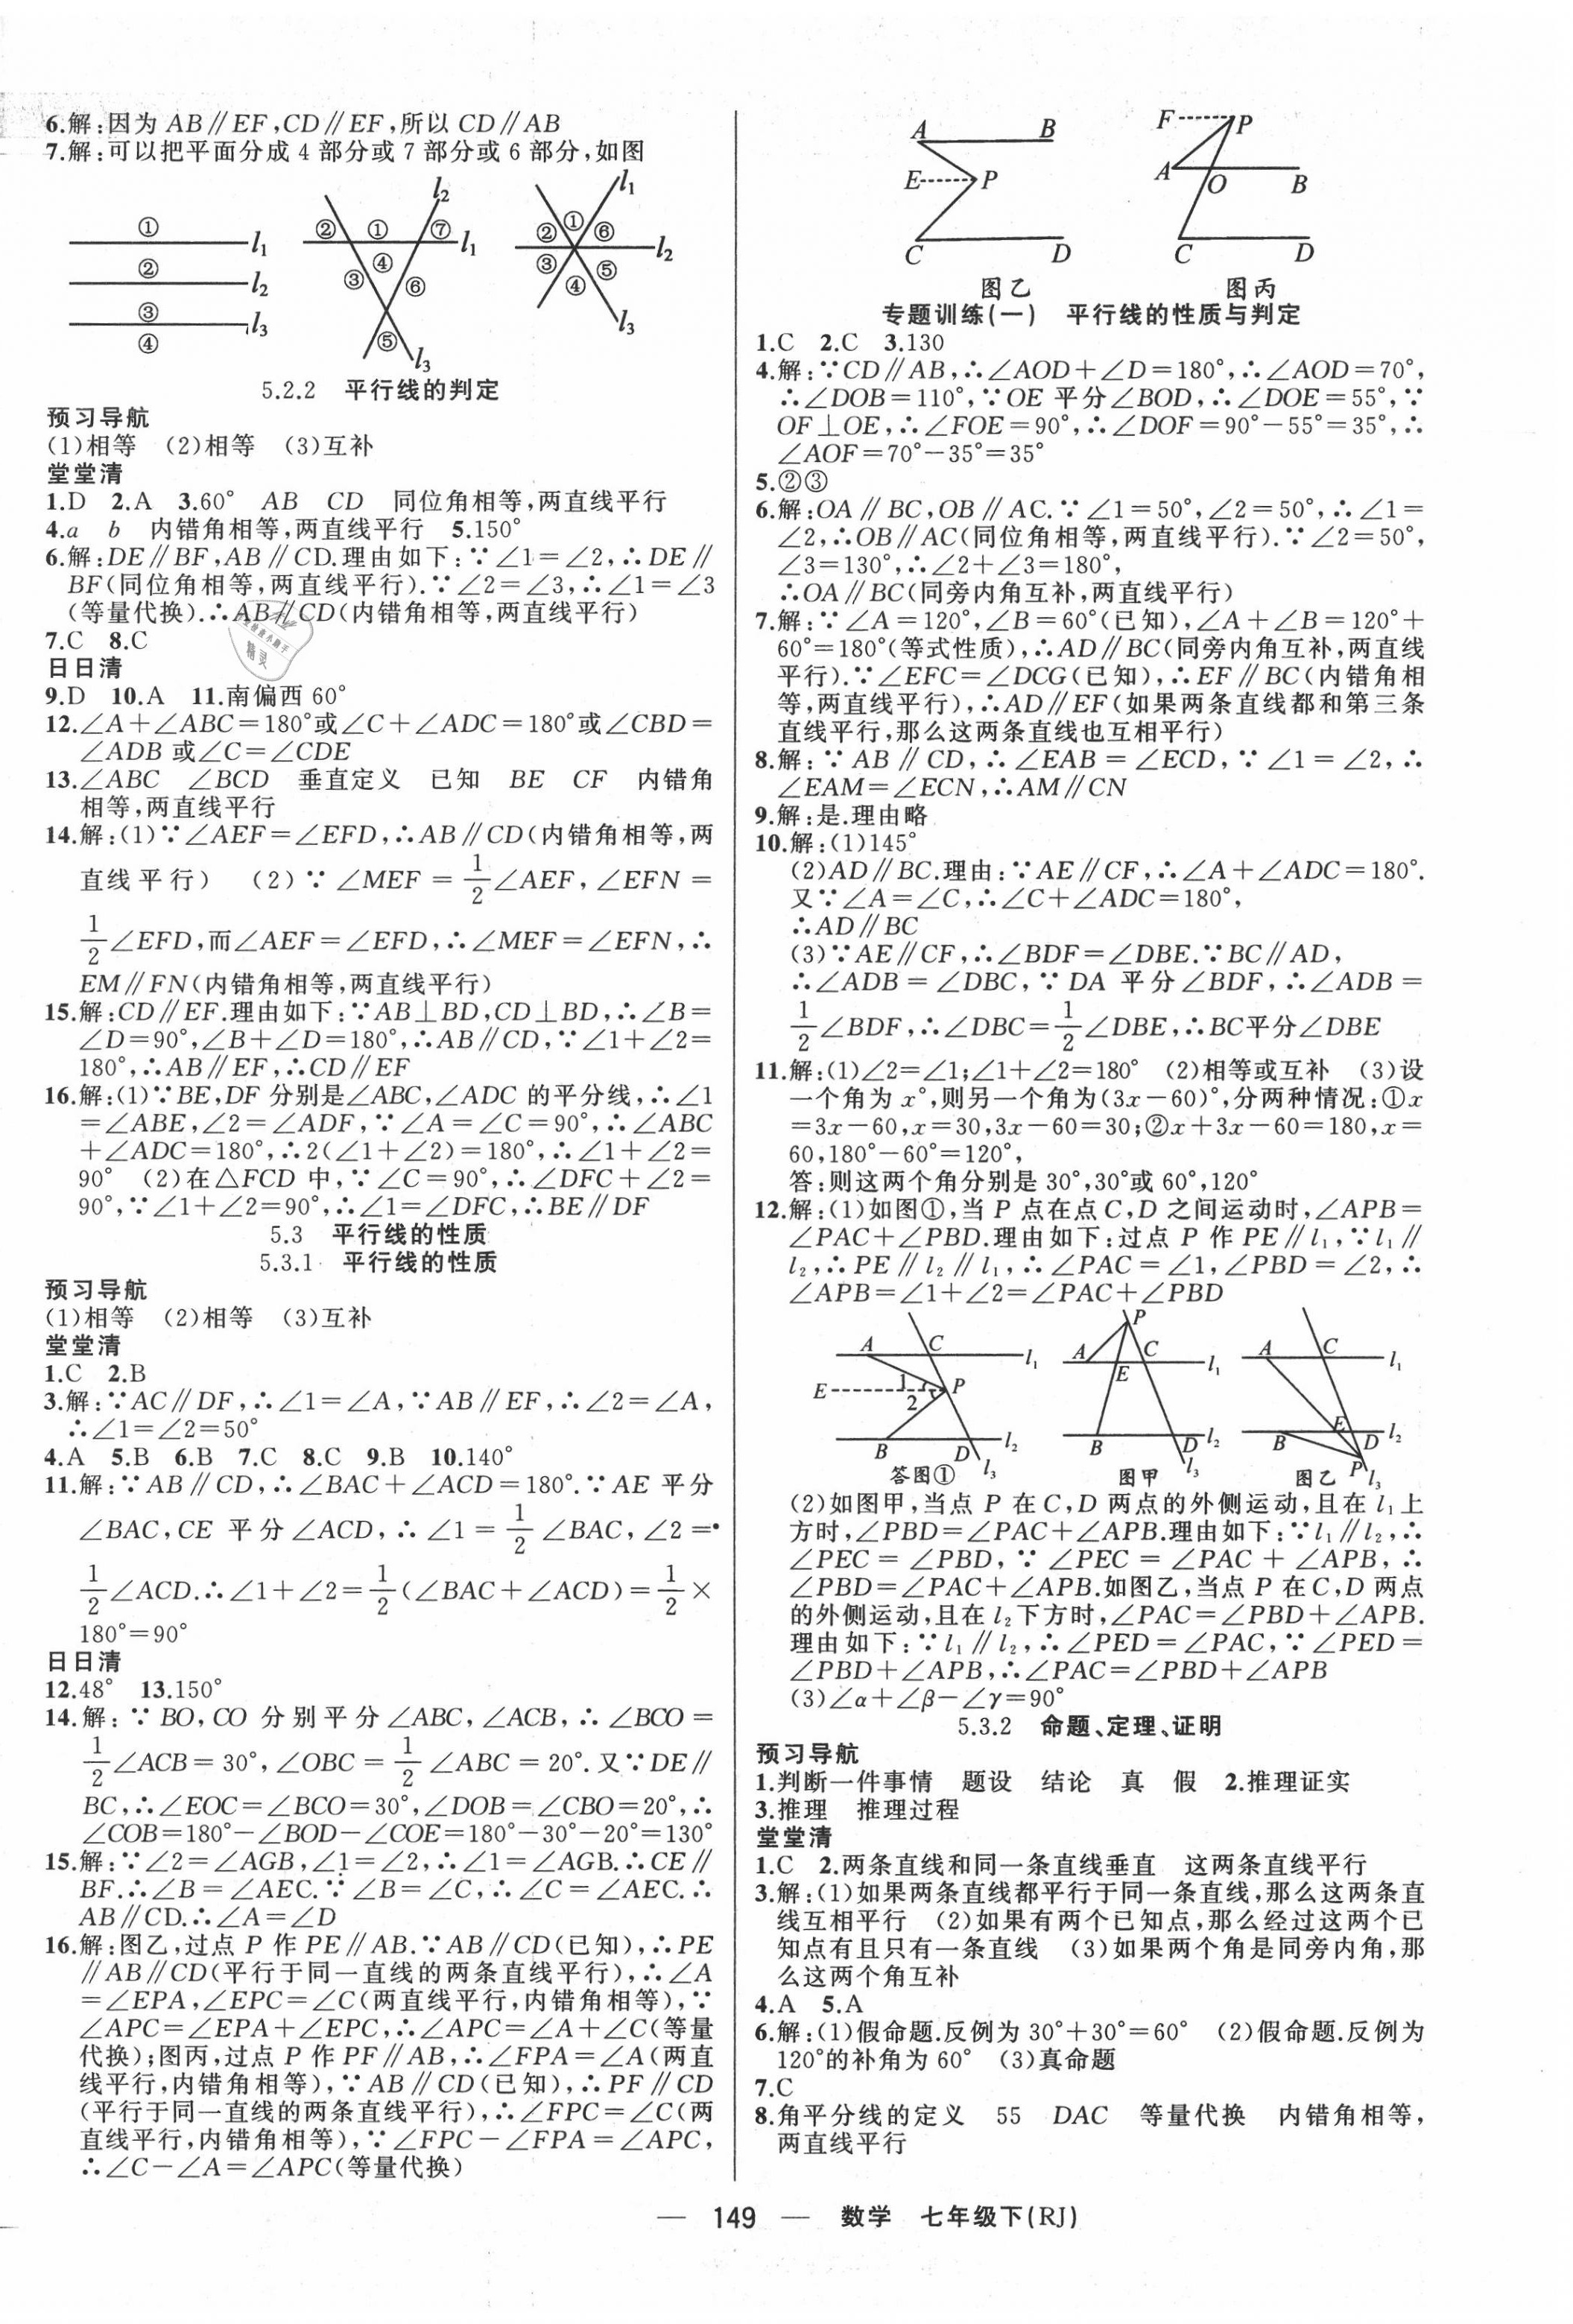 6.解:因为 AB∥EF,CD∥EF,所以 CD∥AB
7.解:可以把平面分成 4 部分或 7 部分或 6 部分,如图
① l₁
② l₂
③ l₃
④
② ① ⑦ l₂ l₁
③ ④ ⑥
⑤ l₃
② ① ⑥ l₁ l₂
③ ④ ⑤ l₃
5.2.2 平行线的判定
预习导航
(1)相等 (2)相等 (3)互补
堂堂清
1.D 2.A 3.60° AB CD 同位角相等,两直线平行
4.a b 内错角相等,两直线平行 5.150°
6.解:DE∥BF,AB∥CD.理由如下:∵∠1=∠2,∴DE∥
BF(同位角相等,两直线平行).∵∠2=∠3,∴∠1=∠3
(等量代换).∴AB∥CD(内错角相等,两直线平行)
7.C 8.C
日日清
9.D 10.A 11.南偏西 60°
12.∠A+∠ABC=180°或∠C+∠ADC=180°或∠CBD=
∠ADB 或∠C=∠CDE
13.∠ABC ∠BCD 垂直定义 已知 BE CF 内错角
相等,两直线平行
14.解:(1)∵∠AEF=∠EFD,∴AB∥CD(内错角相等,两
直线平行) (2)∵∠MEF=1/2∠AEF,∠EFN=
1/2∠EFD,而∠AEF=∠EFD,∴∠MEF=∠EFN,∴
EM∥FN(内错角相等,两直线平行)
15.解:CD∥EF.理由如下:∵AB⊥BD,CD⊥BD,∴∠B=
∠D=90°,∠B+∠D=180°,∴AB∥CD,∵∠1+∠2=
180°,∴AB∥EF,∴CD∥EF
16.解:(1)∵BE,DF 分别是∠ABC,∠ADC 的平分线,∴∠1
=∠ABE,∠2=∠ADF,∵∠A=∠C=90°,∴∠ABC
+∠ADC=180°,∴2(∠1+∠2)=180°,∴∠1+∠2=
90° (2)在△FCD 中,∵∠C=90°,∴∠DFC+∠2=
90°,∵∠1+∠2=90°,∴∠1=∠DFC,∴BE∥DF
5.3 平行线的性质
5.3.1 平行线的性质
预习导航
(1)相等 (2)相等 (3)互补
堂堂清
1.C 2.B
3.解:∵AC∥DF,∴∠1=∠A,∵AB∥EF,∴∠2=∠A,
∴∠1=∠2=50°
4.A 5.B 6.B 7.C 8.C 9.B 10.140°
11.解:∵AB∥CD,∴∠BAC+∠ACD=180°.∵AE 平分
∠BAC,CE 平分∠ACD,∴∠1=1/2∠BAC,∠2=
1/2∠ACD.∴∠1+∠2=1/2(∠BAC+∠ACD)=1/2×
180°=90°
日日清
12.48° 13.150°
14.解:∵BO,CO 分别平分∠ABC,∠ACB,∴∠BCO=
1/2∠ACB=30°,∠OBC=1/2∠ABC=20°.又∵DE∥
BC,∴∠EOC=∠BCO=30°,∠DOB=∠CBO=20°,∴
∠COB=180°-∠BOD-∠COE=180°-30°-20°=130°
15.解:∵∠2=∠AGB,∠1=∠2,∴∠1=∠AGB.∴CE∥
BF.∴∠B=∠AEC.∵∠B=∠C,∴∠C=∠AEC.∴
AB∥CD.∴∠A=∠D
16.解:图乙,过点 P 作 PE∥AB.∵AB∥CD(已知),∴PE
∥AB∥CD(平行于同一直线的两条直线平行),∴∠A
=∠EPA,∠EPC=∠C(两直线平行,内错角相等),∵
∠APC=∠EPA+∠EPC,∴∠APC=∠A+∠C(等量
代换);图丙,过点 P 作 PF∥AB,∴∠FPA=∠A(两直
线平行,内错角相等),∵AB∥CD(已知),∴PF∥CD
(平行于同一直线的两条直线平行),∴∠FPC=∠C(两
直线平行,内错角相等),∵∠FPC-∠FPA=∠APC,
∴∠C-∠A=∠APC(等量代换)
A B E P C D
F P A O B C D
图乙 图丙
专题训练(一) 平行线的性质与判定
1.C 2.C 3.130
4.解:∵CD∥AB,∴∠AOD+∠D=180°,∴∠AOD=70°,
∴∠DOB=110°,∵OE 平分∠BOD,∴∠DOE=55°,∵
OF⊥OE,∴∠FOE=90°,∴∠DOF=90°-55°=35°,∴
∠AOF=70°-35°=35°
5.②③
6.解:OA∥BC,OB∥AC.∵∠1=50°,∠2=50°,∴∠1=
∠2,∴OB∥AC(同位角相等,两直线平行).∵∠2=50°,
∠3=130°,∴∠2+∠3=180°,
∴OA∥BC(同旁内角互补,两直线平行)
7.解:∵∠A=120°,∠B=60°(已知),∠A+∠B=120°+
60°=180°(等式性质),∴AD∥BC(同旁内角互补,两直线
平行).∵∠EFC=∠DCG(已知),∴EF∥BC(内错角相
等,两直线平行),∴AD∥EF(如果两条直线都和第三条
直线平行,那么这两条直线也互相平行)
8.解:∵AB∥CD,∴∠EAB=∠ECD,∵∠1=∠2,∴
∠EAM=∠ECN,∴AM∥CN
9.解:是.理由略
10.解:(1)145°
(2)AD∥BC.理由:∵AE∥CF,∴∠A+∠ADC=180°.
又∵∠A=∠C,∴∠C+∠ADC=180°,
∴AD∥BC
(3)∵AE∥CF,∴∠BDF=∠DBE.∵BC∥AD,
∴∠ADB=∠DBC,∵DA 平分∠BDF,∴∠ADB=
1/2∠BDF,∴∠DBC=1/2∠DBE,∴BC平分∠DBE
11.解:(1)∠2=∠1;∠1+∠2=180° (2)相等或互补 (3)设
一个角为 x°,则另一个角为(3x-60)°,分两种情况:①x
=3x-60,x=30,3x-60=30;②x+3x-60=180,x=
60,180°-60°=120°,
答:则这两个角分别是 30°,30°或 60°,120°
12.解:(1)如图①,当 P 点在点 C,D 之间运动时,∠APB=
∠PAC+∠PBD.理由如下:过点 P 作 PE∥l₁,∵l₁∥
l₂,∴PE∥l₂∥l₁,∴∠PAC=∠1,∠PBD=∠2,∴
∠APB=∠1+∠2=∠PAC+∠PBD
A C l₁ E 1 2 P B D l₂ l₃
P A C l₁ E B D l₂ l₃
A C l₁ B E D l₂ P l₃
答图① 图甲 图乙
(2)如图甲,当点 P 在 C,D 两点的外侧运动,且在 l₁上
方时,∠PBD=∠PAC+∠APB.理由如下:∵l₁∥l₂,∴
∠PEC=∠PBD,∵∠PEC=∠PAC+∠APB,∴
∠PBD=∠PAC+∠APB.如图乙,当点 P 在 C,D 两点
的外侧运动,且在 l₂下方时,∠PAC=∠PBD+∠APB.
理由如下:∵l₁∥l₂,∴∠PED=∠PAC,∵∠PED=
∠PBD+∠APB,∴∠PAC=∠PBD+∠APB
(3)∠α+∠β-∠γ=90°
5.3.2 命题、定理、证明
预习导航
1.判断一件事情 题设 结论 真 假 2.推理证实
3.推理 推理过程
堂堂清
1.C 2.两条直线和同一条直线垂直 这两条直线平行
3.解:(1)如果两条直线都平行于同一条直线,那么这两条直
线互相平行 (2)如果有两个已知点,那么经过这两个已
知点有且只有一条直线 (3)如果两个角是同旁内角,那
么这两个角互补
4.A 5.A
6.解:(1)假命题.反例为 30°+30°=60° (2)假命题.反例为
120°的补角为 60° (3)真命题
7.C
8.角平分线的定义 55 DAC 等量代换 内错角相等,
两直线平行
— 149 — 数学 七年级下(RJ)